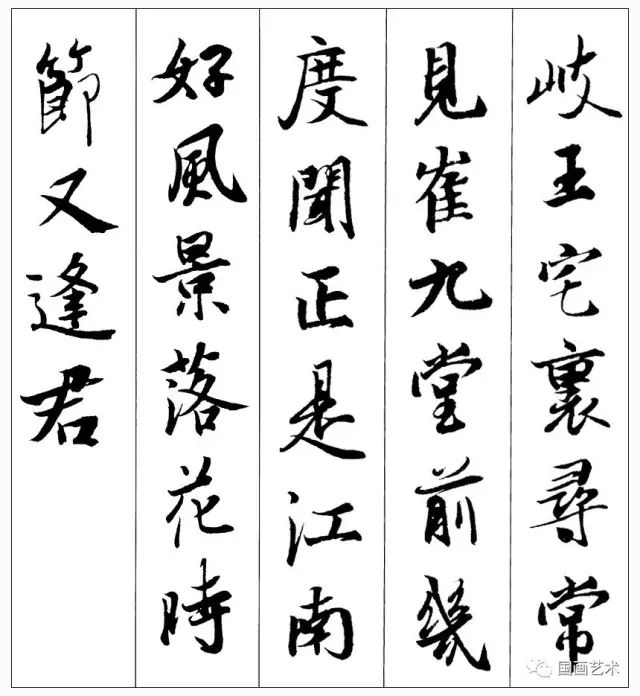 岐王宅裏尋常
見崔九堂前幾
度聞正是江南
好風景落花時
節又逢君
国画艺术